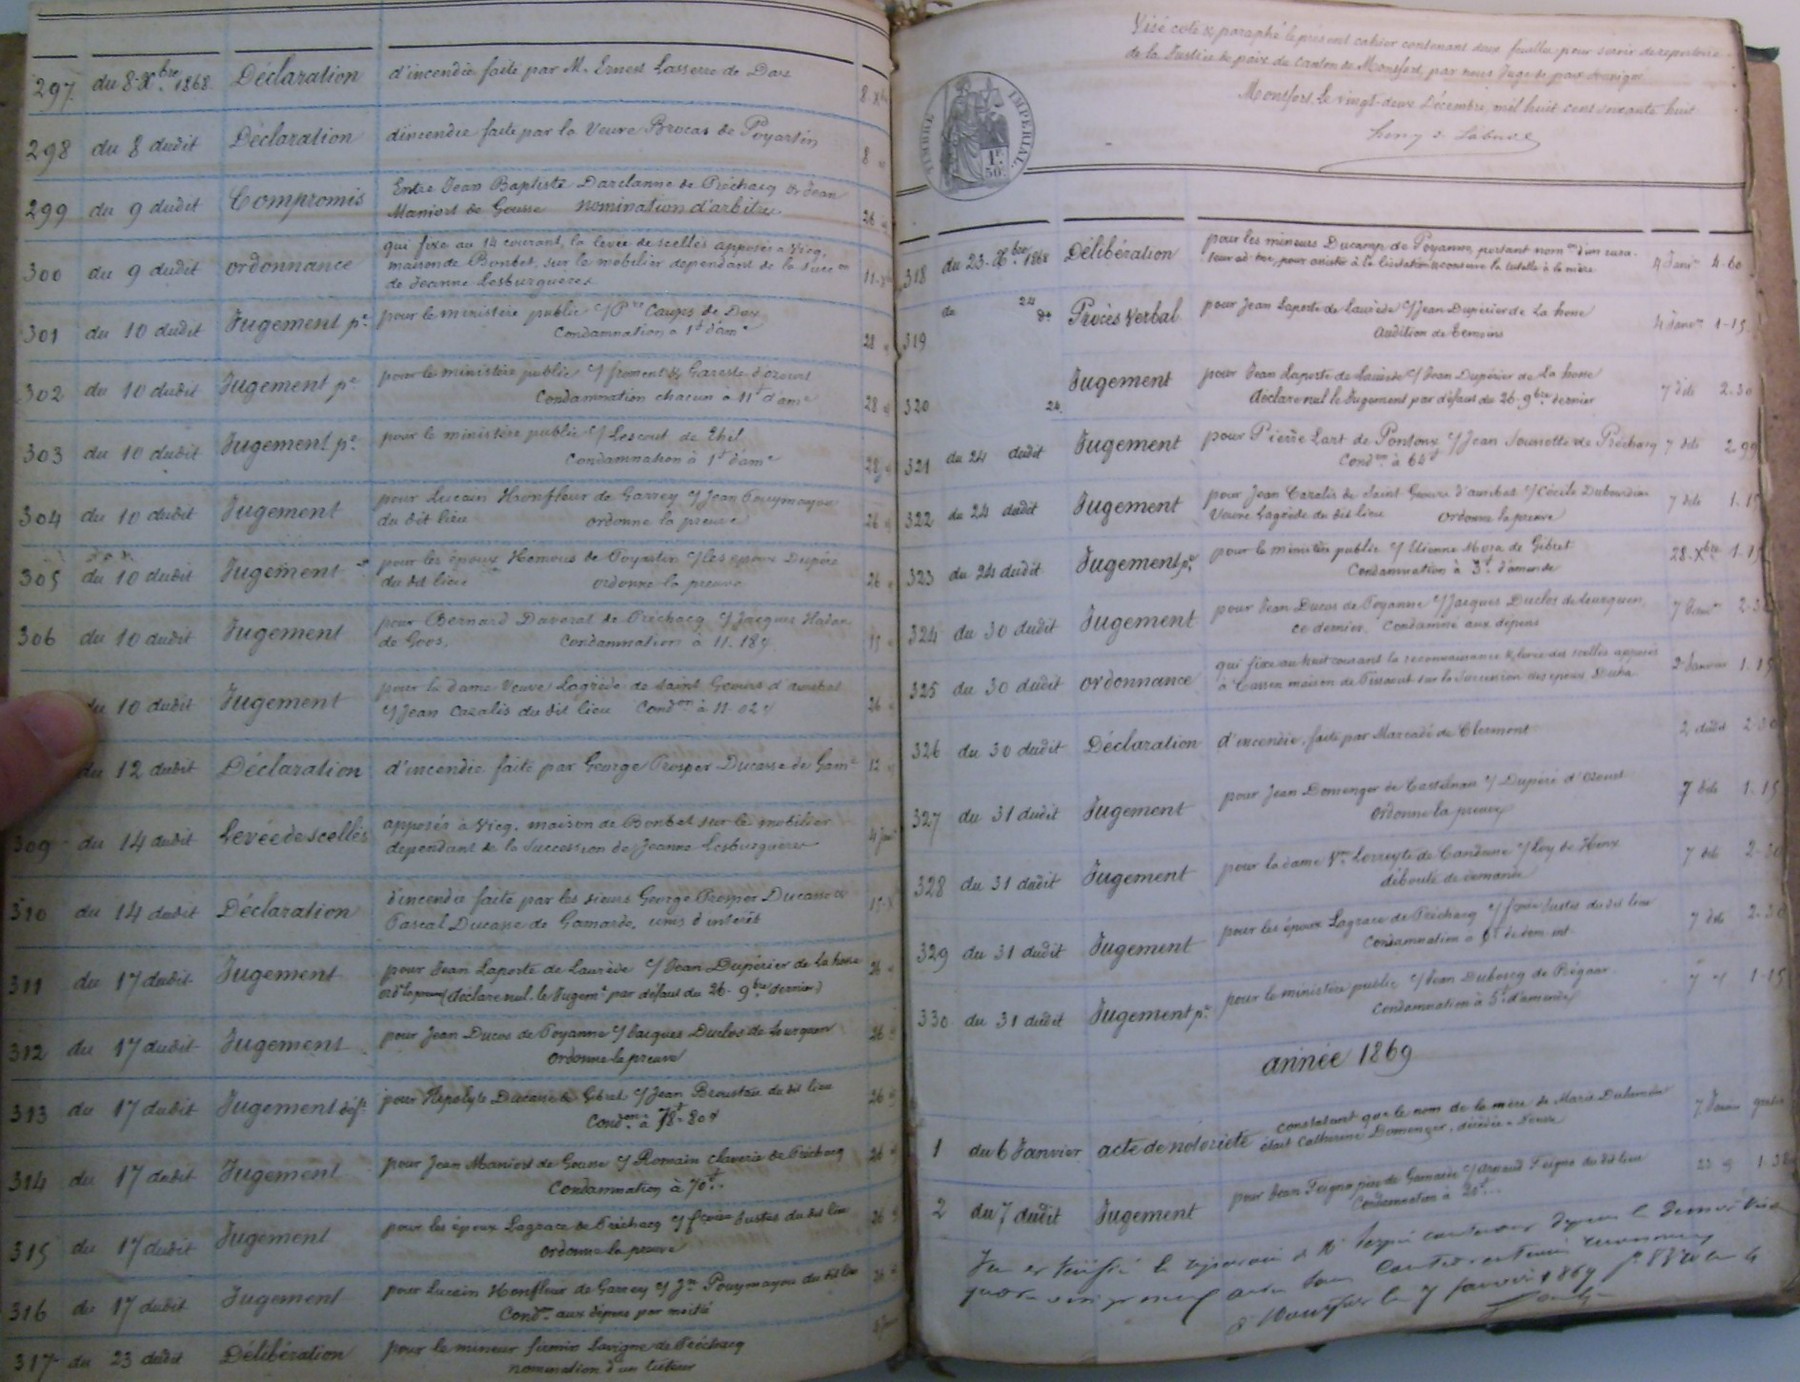 297 du 8 Xbre 1868 Déclaration d'incendie faite par M. Ernest Lasserre de Dax 8 Xbre
298 du 8 dudit Déclaration d'incendie faite par la Veuve Brocas de Poyartin 8
299 du 9 dudit Compromis Entre Jean Baptiste Darclanne de Préchacq & Jean
Maniort de Gousse nomination d'arbitre 26
300 du 9 dudit ordonnance qui fixe au 14 courant, la levée de scellés apposés à Vicq,
maison de Bonbet, sur le mobilier dependant de la succon
de Jeanne Lesburguères 11 Xbre
301 du 10 dudit Jugement pce pour le ministère public c/ Pre Caupes de Dax
Condamnation à 1f d'ame 28
302 du 10 dudit Jugement pce pour le ministère public c/ froment & Gareste d'ozourt
Condamnation chacun à 11f d'ame 28
303 du 10 dudit Jugement pce pour le ministère public c/ Lescout de
Condamnation à 1f d'ame 28
304 du 10 dudit Jugement pour Lucain Honfleur de Garrey c/ Jean Pouymayou
du dit lieu ordonne la preuve 26
305 du 10 dudit Jugement pour les époux de Poyartin c/ les époux Dupéré
du dit lieu ordonne la preuve 26
306 du 10 dudit Jugement pour Bernard Davorat de Préchacq c/ Jacques
de Goos. Condamnation à 11-18c
du 10 dudit Jugement pour la dame Veuve Lagrède de Saint Geours d'auribat
c/ Jean Cazalis du dit lieu Condon à 11-02c 26
du 12 dudit Déclaration d'incendie faite par George Prosper Ducasse de Game 12
309 du 14 dudit Levée de scellés apposés à Vicq, maison de Bonbet sur le mobilier
dependant de la Succession de Jeanne Lesburguères 4 Janv
310 du 14 dudit Déclaration d'incendie faite par les sieurs George Prosper Ducasse &
Pascal Ducasse de Gamarde, unis d'intérêt
311 du 17 dudit Jugement pour Jean Laporte de Laurède c/ Jean Dupérier de La hosse 26
(déclare nul le Jugemt par défaut du 26 9bre dernier)
312 du 17 dudit Jugement pour Jean Ducos de Poyanne c/ Jacques Duclos de Lourquen 26
ordonne la preuve
313 du 17 dudit Jugement déft pour Hypolyte Ducasse de Gibret c/ Jean Broustau du dit lieu 26
Condon à 78f-80c
314 du 17 dudit Jugement pour Jean Maniort de Gousse c/ Romain claverie de Préchacq 26
Condamnation à 70f
315 du 17 dudit Jugement pour les époux Lagrace de Préchacq c/ fçoise Justes du dit lieu 26
ordonne la preuve
316 du 17 dudit Jugement pour Lucain Honfleur de Garrey c/ Jn Pouymayou du dit lieu 26
Condon aux dépens par moitié
317 du 23 dudit Délibération pour le mineur firmin Lavigne de Préchacq
nomination d'un tuteur
Visé coté & paraphé le présent cahier contenant deux feuilles pour servir de repertoire
de la Justice de paix du Canton de Montfort, par nous Juge de paix soussigné
Montfort le vingt-deux Décembre mil huit cent soixante huit
TIMBRE IMPERIAL
1F 50C
318 du 23 Xbre 1868 Délibération pour les mineurs Ducamp de Poyanne, portant nomon d'un cura-
teur ad-hoc, pour assister à la licitation & conserve la tutelle à la mère 4 Janv 4-60
319 du 24 do Procès verbal pour Jean Laporte de Laurède c/ Jean Dupérier de La hosse
Audition de temoins 4 Janv 1-15
320 24 Jugement pour Jean Laporte de Laurède c/ Jean Dupérier de La hosse
déclare nul le Jugement par défaut du 26 9bre dernier 7 dito 2-30
321 du 24 dudit Jugement pour Pierre Lart de Pontonx c/ Jean de Préchacq 7 dito 2-99
Condon à 64f
322 du 24 dudit Jugement pour Jean Cazalis de Saint Geours d'auribat c/ Cécile Dubourdieu
Veuve Lagrède du dit lieu ordonne la preuve 7 dito 1-15
323 du 24 dudit Jugement pce pour le ministère public c/ Etienne Mora de Gibret
Condamnation à 3f d'amende 28 Xbre 1-15
324 du 30 dudit Jugement pour Jean Ducos de Poyanne c/ Jacques Duclos de Lourquen,
ce dernier Condamné aux dépens 7 Janv 2-30
325 du 30 dudit ordonnance qui fixe au huit courant la reconnaissance & levée des scellés apposés
à Cassen maison de sur la Succession des époux 2 Janvier 1-15
326 du 30 dudit Déclaration d'incendie, faite par Marcadé de Clermont 2 dudit 2-30
327 du 31 dudit Jugement pour Jean Domenger de Castelnau c/ Dupéré d'Ozourt
ordonne la preuve 7 dito 1-15
328 du 31 dudit Jugement pour la dame Vve Lorreyte de Candresse c/ Loy de Hinx
déboute de demande 7 dito 2-30
329 du 31 dudit Jugement pour les époux Lagrace de Préchacq c/ fçoise Justes du dit lieu
Condamnation à 7 dito 2-30
330 du 31 dudit Jugement pce pour le ministère public c/ Jean Duboscq de
Condamnation à 5f d'amende 7 1-15
année 1869
1 du 6 Janvier acte de notoriété constatant que le nom de la mère de Marie
était Catherine Domenger, décédée 7 Janvier gratis
2 du 7 dudit Jugement pour Jean Feigna père de Gamarde c/ Arnaud Feigna du dit lieu
Condamnation à 23
Montfort le 7 janvier 1869